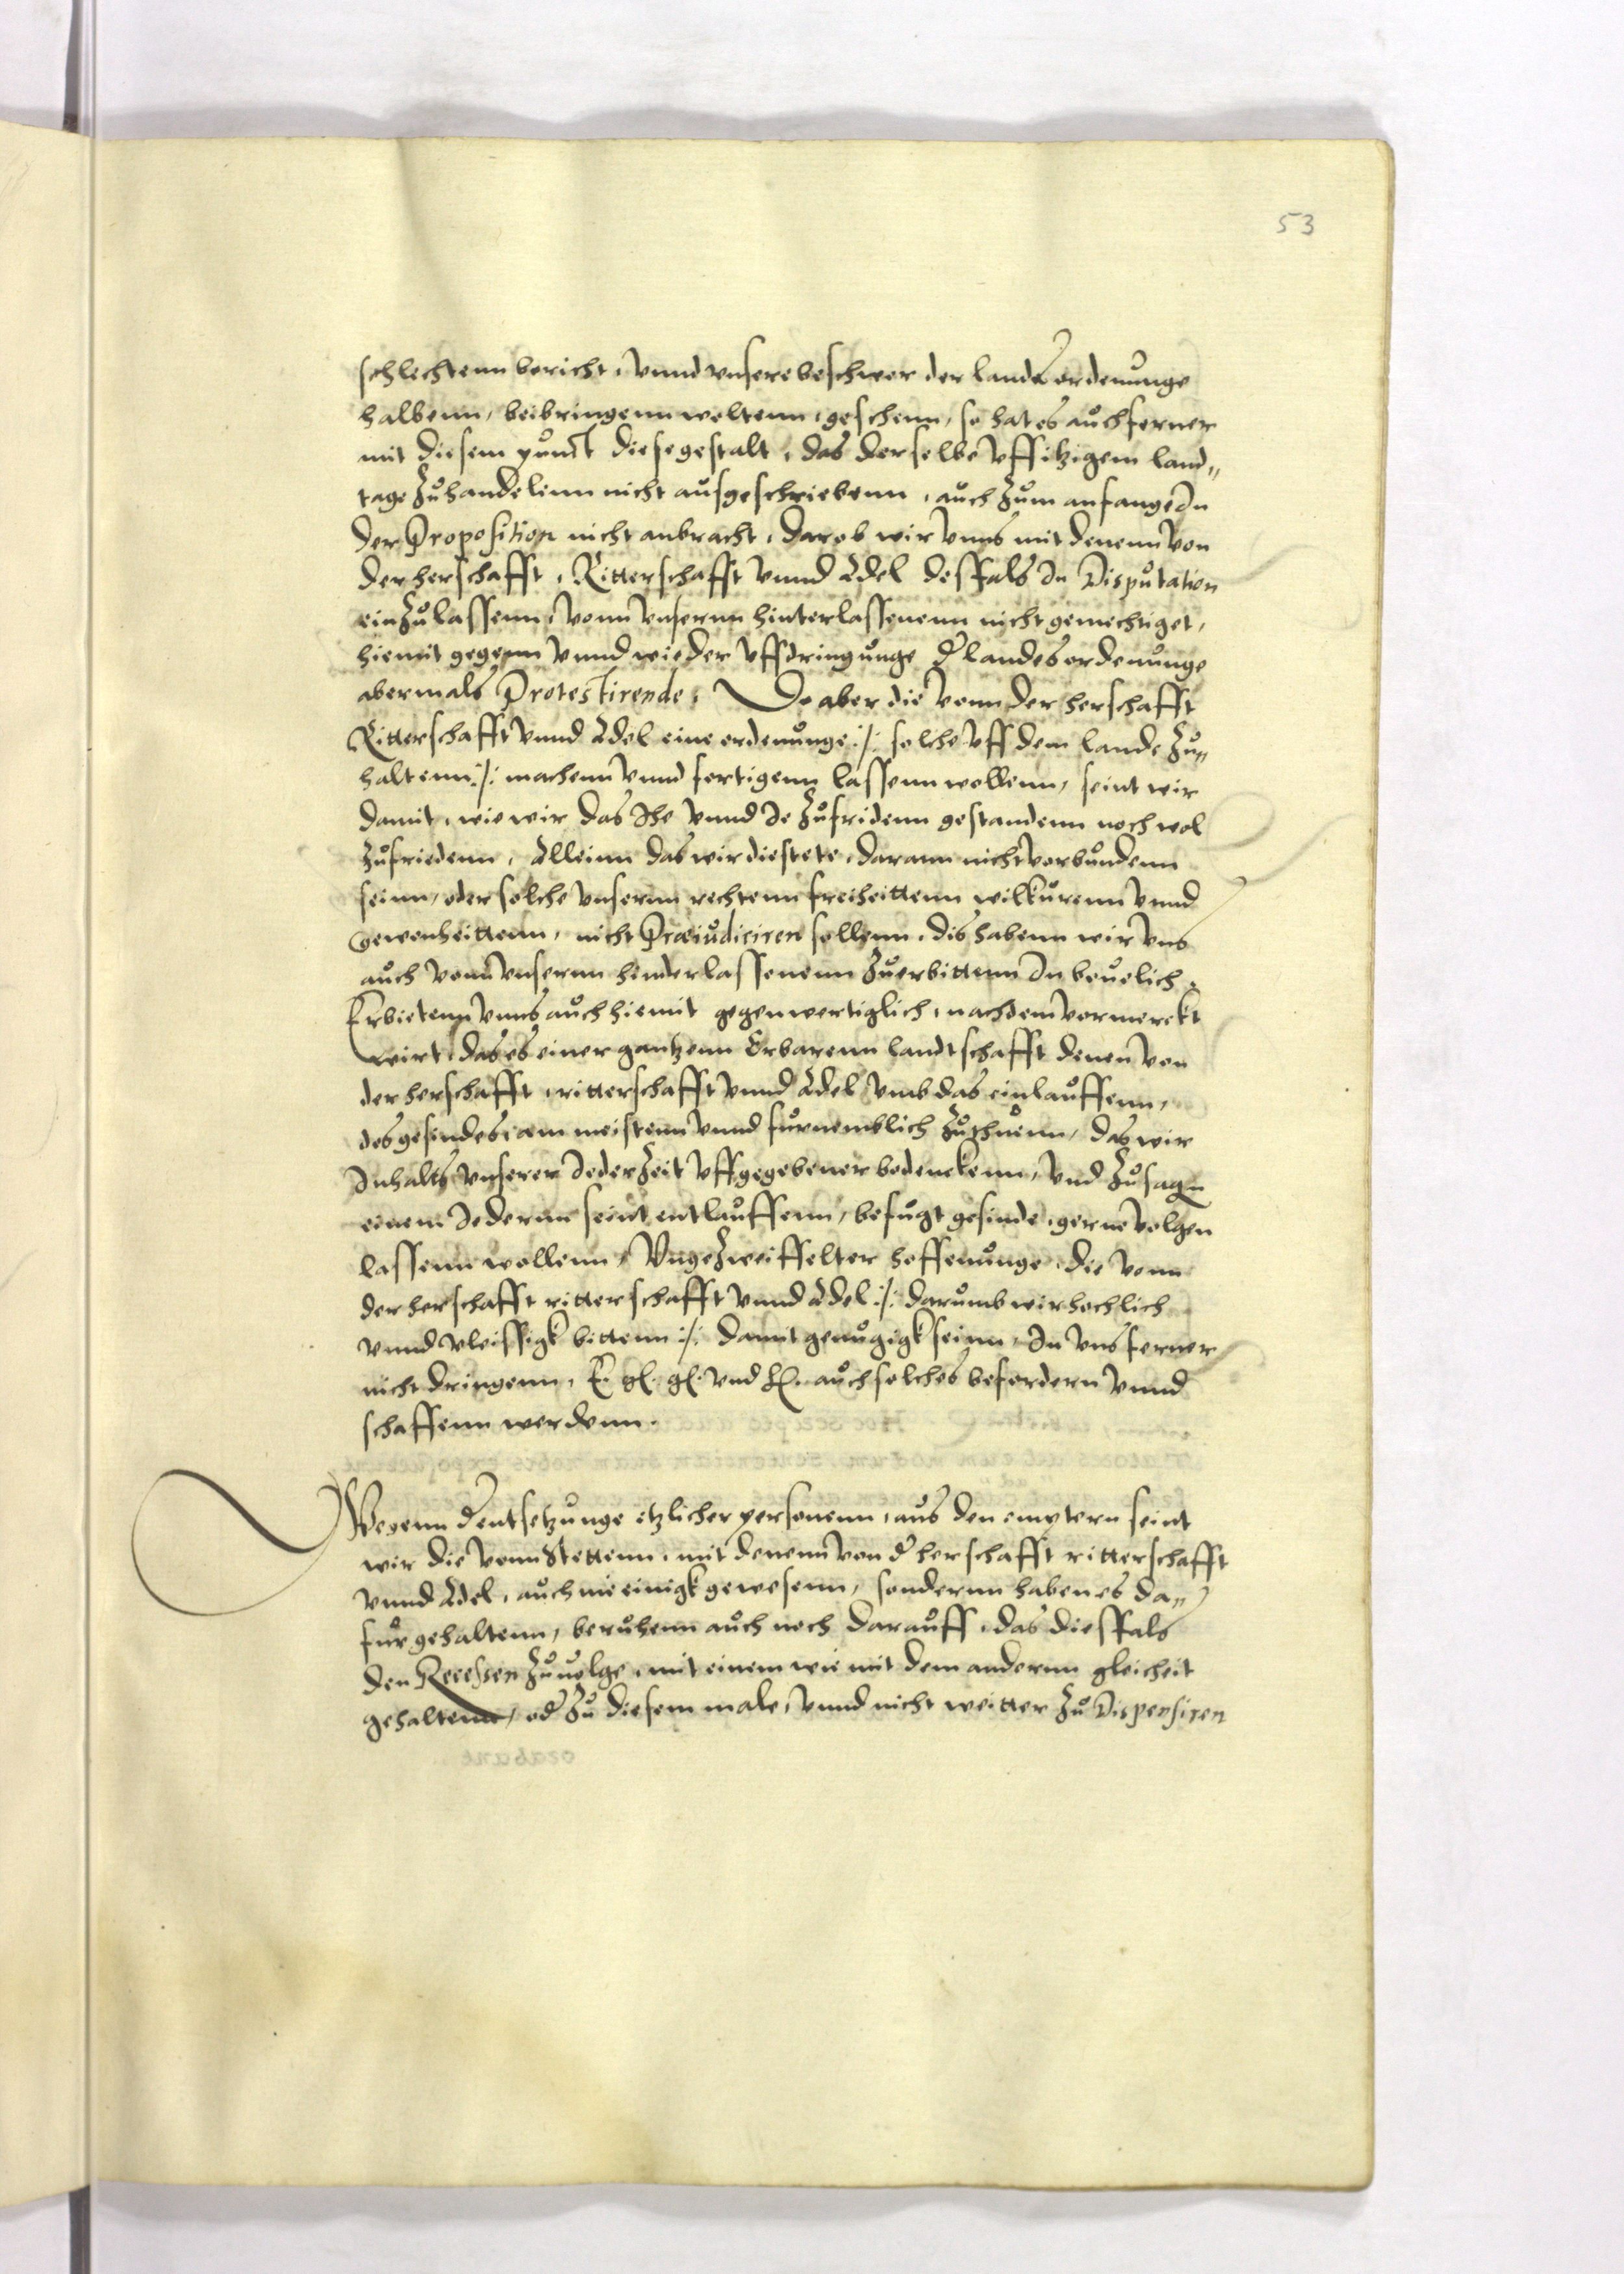 53
schlechtenn bericht, vnnd vnsere beschwer der landesordenunge
halbenn, beibringenn woltenn, geschenn, so hat es auch ferner
mit diesem punct diese gestalt, das derselbe vff itzigem land„
tage zuhandelenn nicht ausgeschriebenn, auch zum anfange In
der Proposition nicht anbracht, darob wir vnns mit denenn von
der herschafft, Ritterschafft vnnd Adel desfals In Disputation
einzulassenn, vonn vnsernn hinterlassenenn nicht gemechtiget,
hiemit gegenn vnnd wieder vffdringunge d' landesordenunge
abermals Protestirende, Do aber die vonn der herschafft
Ritterschafft vnnd Adel eine ordenunge :/: solche vff dem lande zu„
haltenn :/: machenn vnnd fertigenn lassenn wollenn, seint wir
damit, wie wir das Ihe vnnd Ie zufridenn gestandenn noch wol
zufriedenn, Alleinn das wir die stete, darann nicht verbundenn
seinn, oder solche vnsernn rechtenn freiheittenn wilkurenn vnnd
gewonheittenn, nicht Præiudiciren sollenn, dis habenn wir vns
auch vonn vnsernn hinderlassenenn zuerbittenn In beuelich,
Erbietenn vnns auch hiemit gegenwertiglich, nachdem vermerckt
wirt, das es einer gantzenn Erbarenn landtschafft denen von
der herschafft, ritterschafft vnnd Adel vmb das einlauffenn,
des gesindes, am meistenn vnnd furnemblich zuthuenn, das wir
Inhalts vnserer Jederzeit vffgegebener bedenckenn, vnd zusagn
einem Jedernn seint entlauffenn, befugt gesinde, gerne volgen
lassenn wollenn, Vngezweiffelter hoffenunge, die vonn
der herschafft ritterschafft vnnd Adel :/: darumb wir hochlich
vnnd vleissigk bittenn :/: damit genugigk seinn, In vns ferner
nicht dringenn, E. gl. gl. vnd h. auch solches befordern vnnd
schaffenn werdenn.
Wegenn d' entsetzunge etzlicher personenn, aus den emptern seint
wir die vonn Stettenn, mit denenn von d' herschafft ritterschafft
vnnd Adel, auch nie einigk gewesenn, sondernn haben es da„
fur gehaltenn, beruhenn auch noch darauff, das diesfals
den Recessen zuuolge, mit einem wie mit dem andernn gleicheit
gehaltenn, od' zu diesem male, vnnd nicht weitter zu Dispensiren